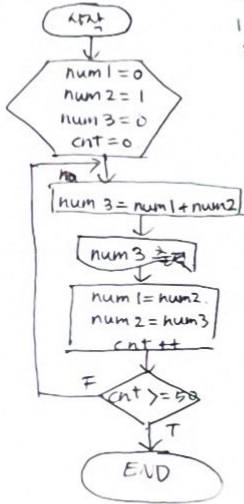 시작
num1=0
num2=1
num3=0
cnt=0
num3=num1+num2
num3
num1=num2.
num2=num3
cnt++
F
cnt>=50
T
END